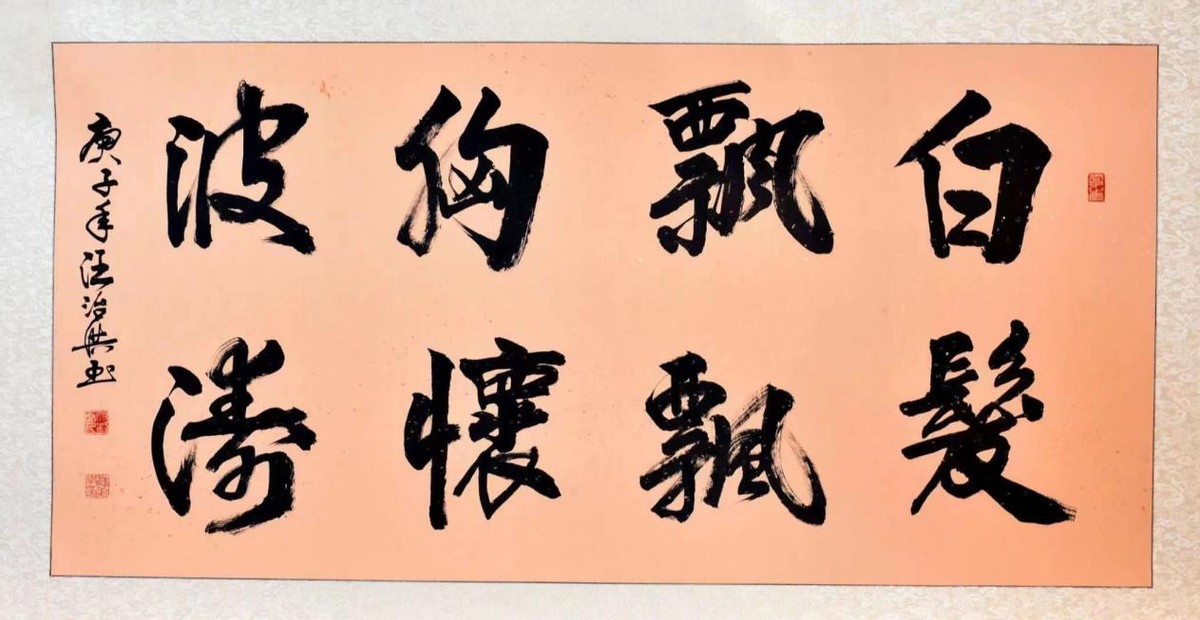 白髮
飄飄
胸懷
波濤
庚子年汪治